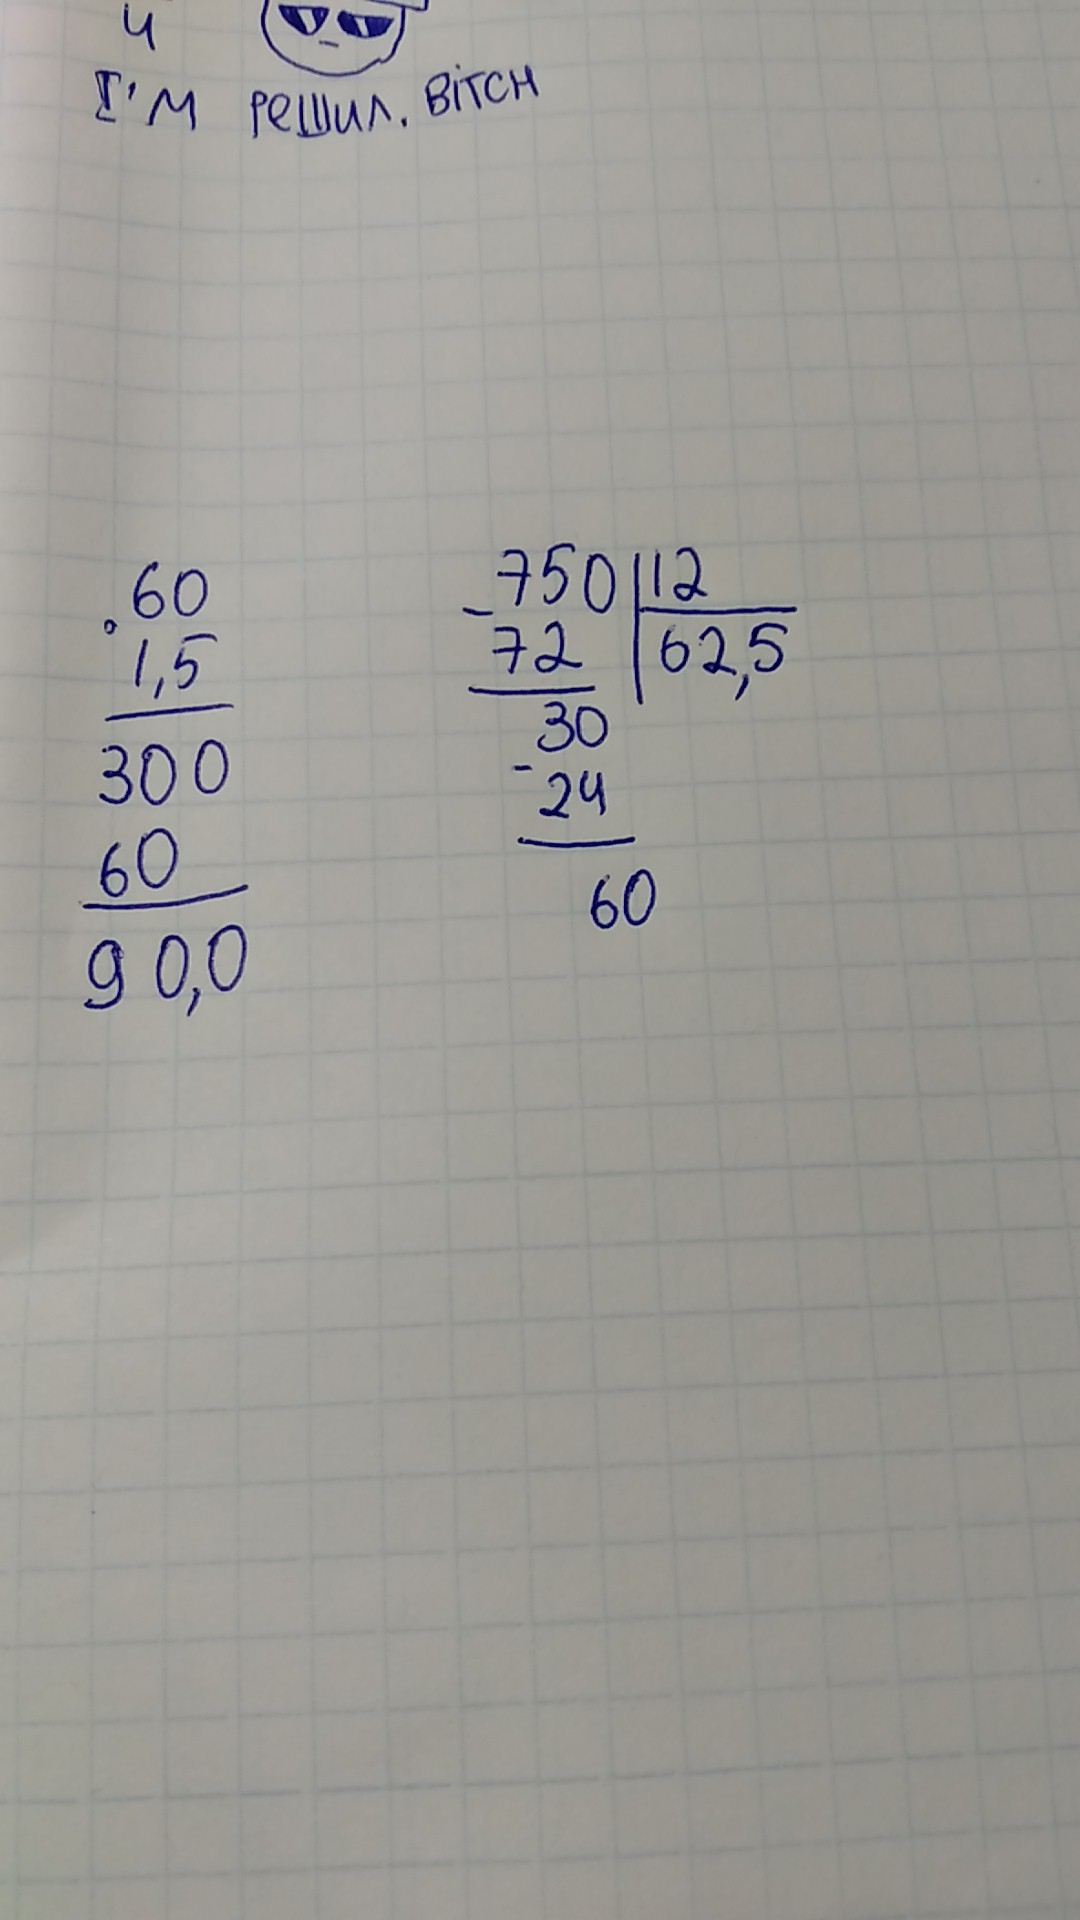 4
I'M решил. BiTCH
60
1,5
300
60
90,0
-750|12
72 62,5
30
-24
60